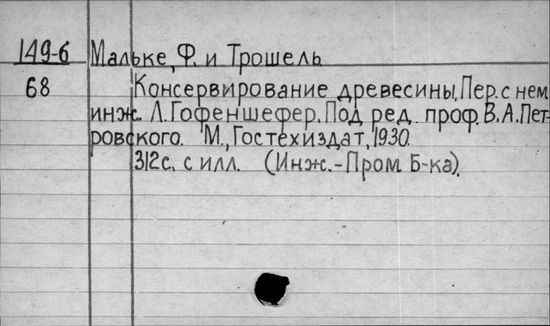 149-б Мальке, Ф. и Трошель
68 Консервирование древесины, Пер. с нем
инж. Л. Гофеншефер. Под ред. проф. В. А. Пет-
ровского. М., Гостехиздат, 1930.
312 с. с илл. (Инж.-Пром. Б-ка).